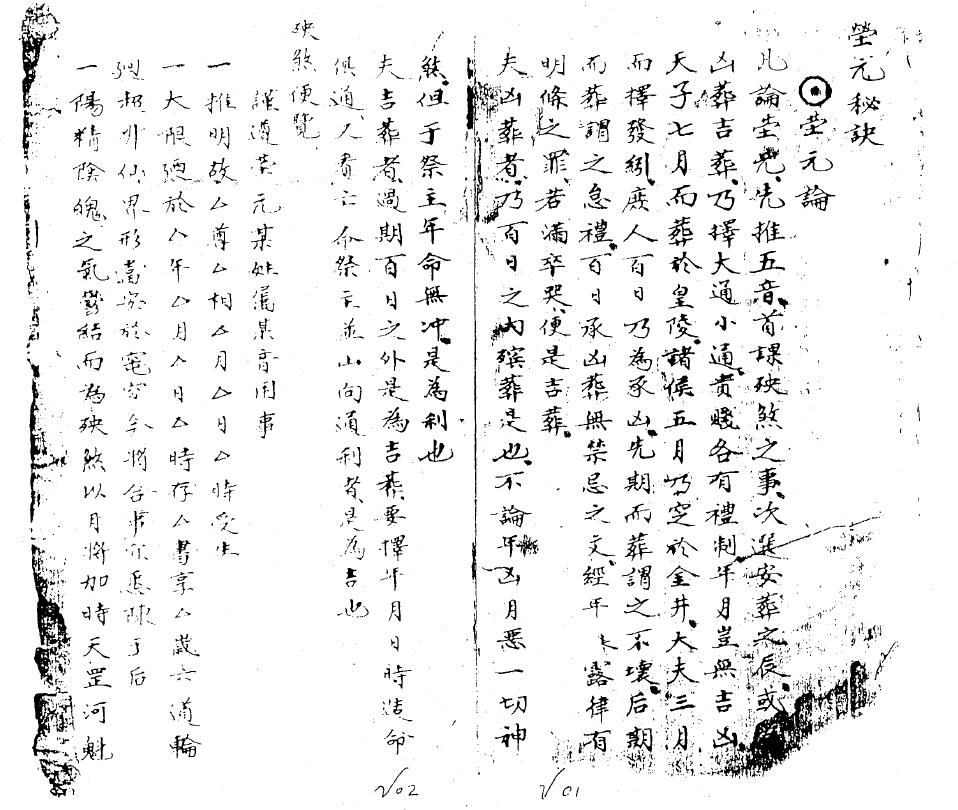 塋元秘訣
塋元論
此論塋兇先推五音首課殃煞之事次選安葬之辰或
凶葬吉葬乃擇大通小通貴賤各有禮制年月豈無吉凶
天子七月而葬於皇陵諸侯五月乃窆於金井大夫三月
而擇發紖庶人百日乃為承凶先期而葬謂之不壞后期
而葬謂之怠禮百日承凶葬無禁忌之文經年露律有
明條之罪若滿卒哭便是吉葬
夫凶葬者乃百日之內殯葬是也不論年凶月惡一切神
煞但于祭主年命無冲是為利也
夫吉葬者過期百日之外是為吉葬要擇年月日時造命
俱通人看亡命祭主並山向通利者是為吉也
殃煞便覽
謹遵塋元某姓屬某音用事
一推明故厶尊厶相厶月厶日厶時受生
一大限殂於厶年厶月厶日厶時存厶書享厶歲六道輪
超升仙界形當安於窀穸今將合事宜悉陳于后
一陽精陰魄之氣鬱結而為殃煞以月將加時天罡河魁
V01
V02